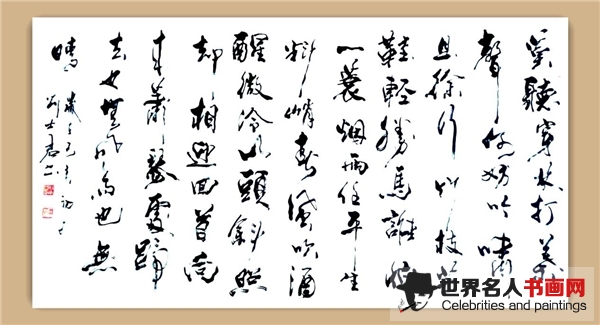 莫聽穿林打葉
聲何妨吟嘯
且徐行竹杖芒
鞋輕勝馬誰怕
一蓑烟雨任平生
料峭春風吹酒
醒微冷山頭斜照
却相迎回首向
来蕭瑟處歸
去也無風雨也無
晴
世界名人书画网
Celebrities and paintings